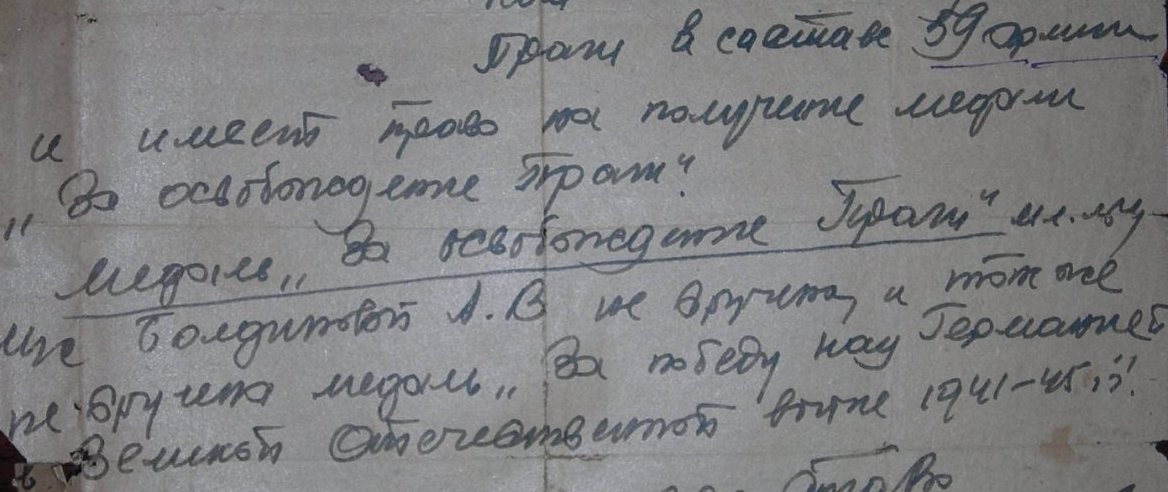 Праги в составе 59 армии
и имеет право на получение медали
„За освобождение Праги“.
Медаль „За освобождение Праги“ мл. лей-
ще Болдиновой А.В не вручена, и также
не вручена медаль „За победу над Германией
в Великой Отечественной войне 1941-45 гг.“